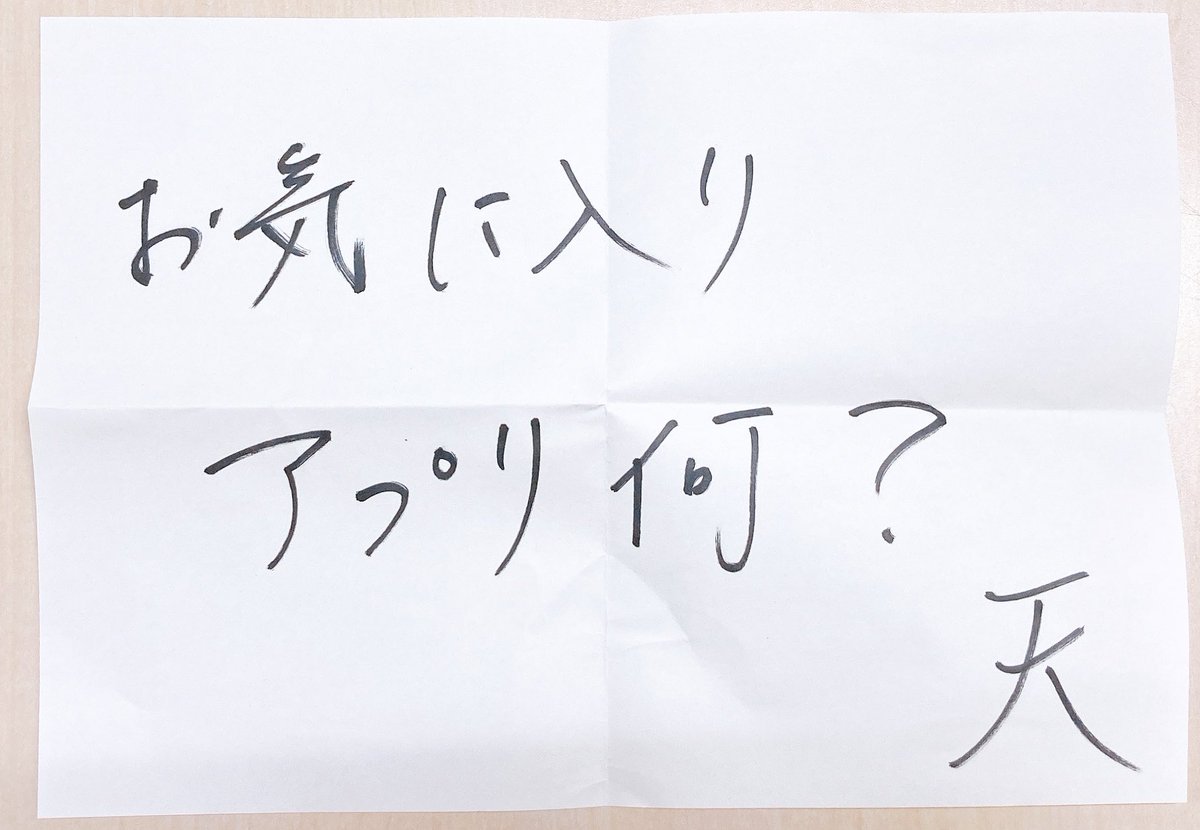 お気に入り
アプリ何?
天